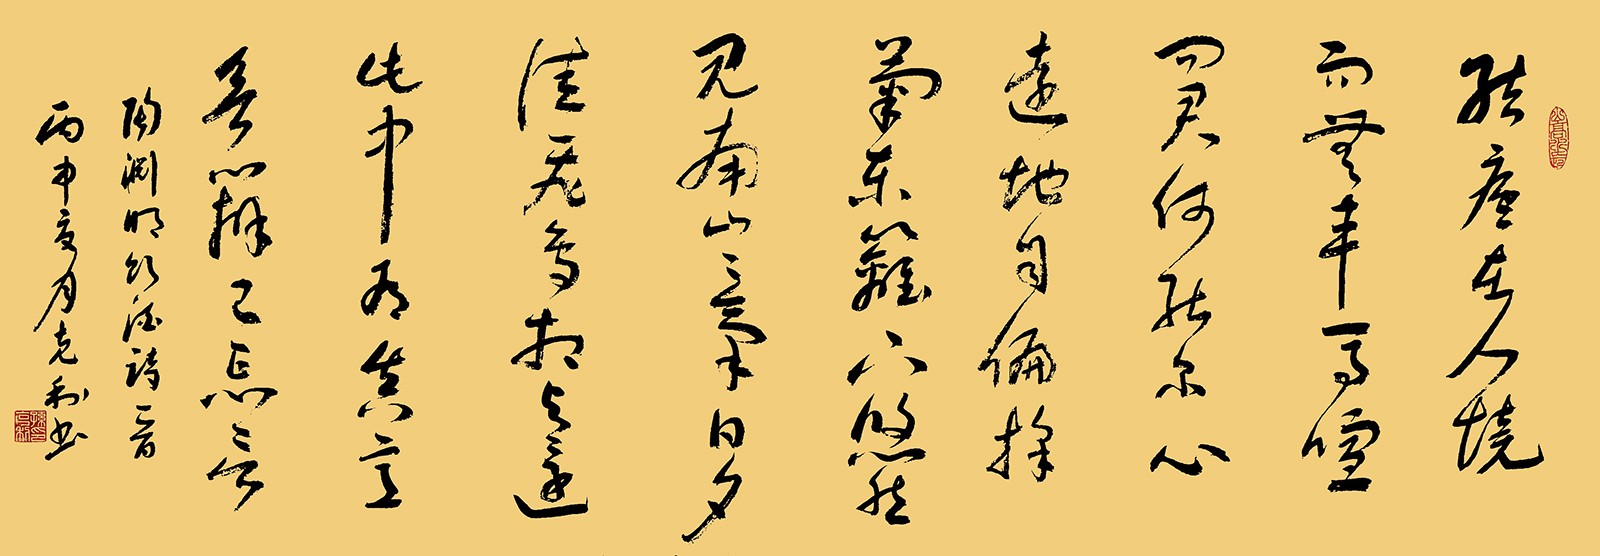 結廬在人境
而無車馬喧
問君何能尔心
遠地自偏採
菊東籬下悠然
見南山山氣日夕
佳飛鳥相与還
此中有真意
欲辨已忘言
陶淵明飲酒詩一首
丙申夏月克利书